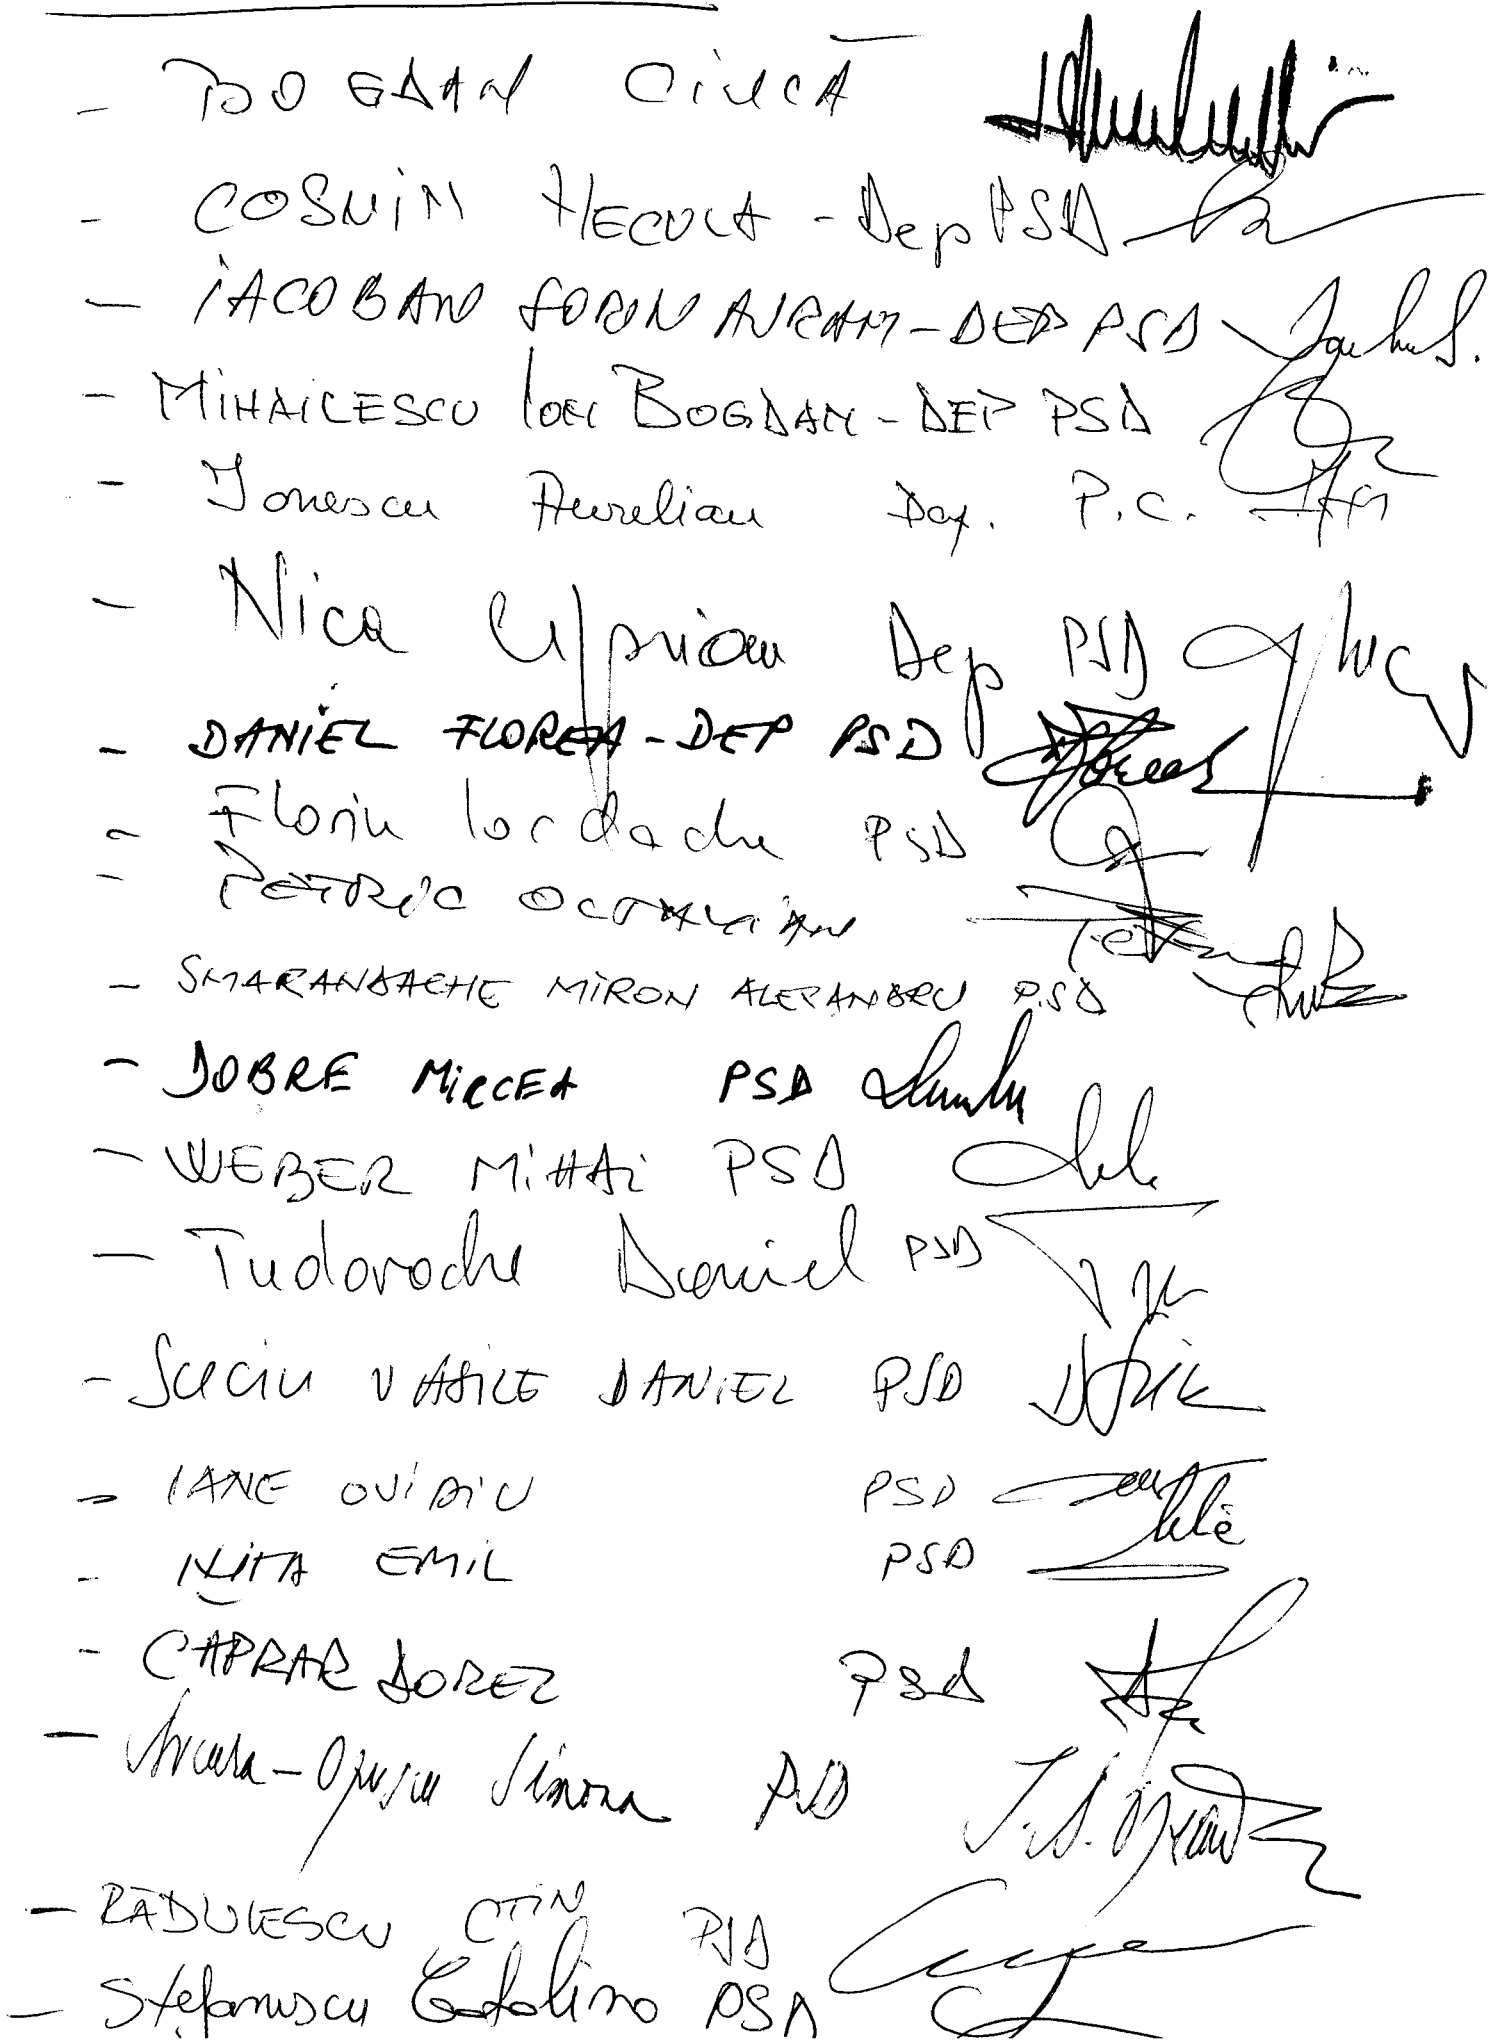 - BOGDAN CIUCĂ
- COSMIN NECULA - Dep PSD
- IACOBAN SORIN AVRAM - DEP PSD
- MIHAILESCU Ioan BOGDAN - DEP PSD
- Ionescu Aurelian Dep. P.C.
- Nica Ciprian Dep PSD
- DANIEL FLOREA - DEP PSD
- Florin Iordache PSD
- PETRIC OCTAVIAN
- SMARANDACHE MIRON ALEXANDRU PSD
- DOBRE MIRCEA PSD
- WEBER MIHAI PSD
- Tudorache Daniel PSD
- Suciu VASILE DANIEL PSD
- IANE OVIDIU PSD
- NIȚA EMIL PSD
- CĂPRAR DOREL PSD
- Simona PSD
- RĂDULESCU CTIN PSD
- Ștefănescu Catalina PSD